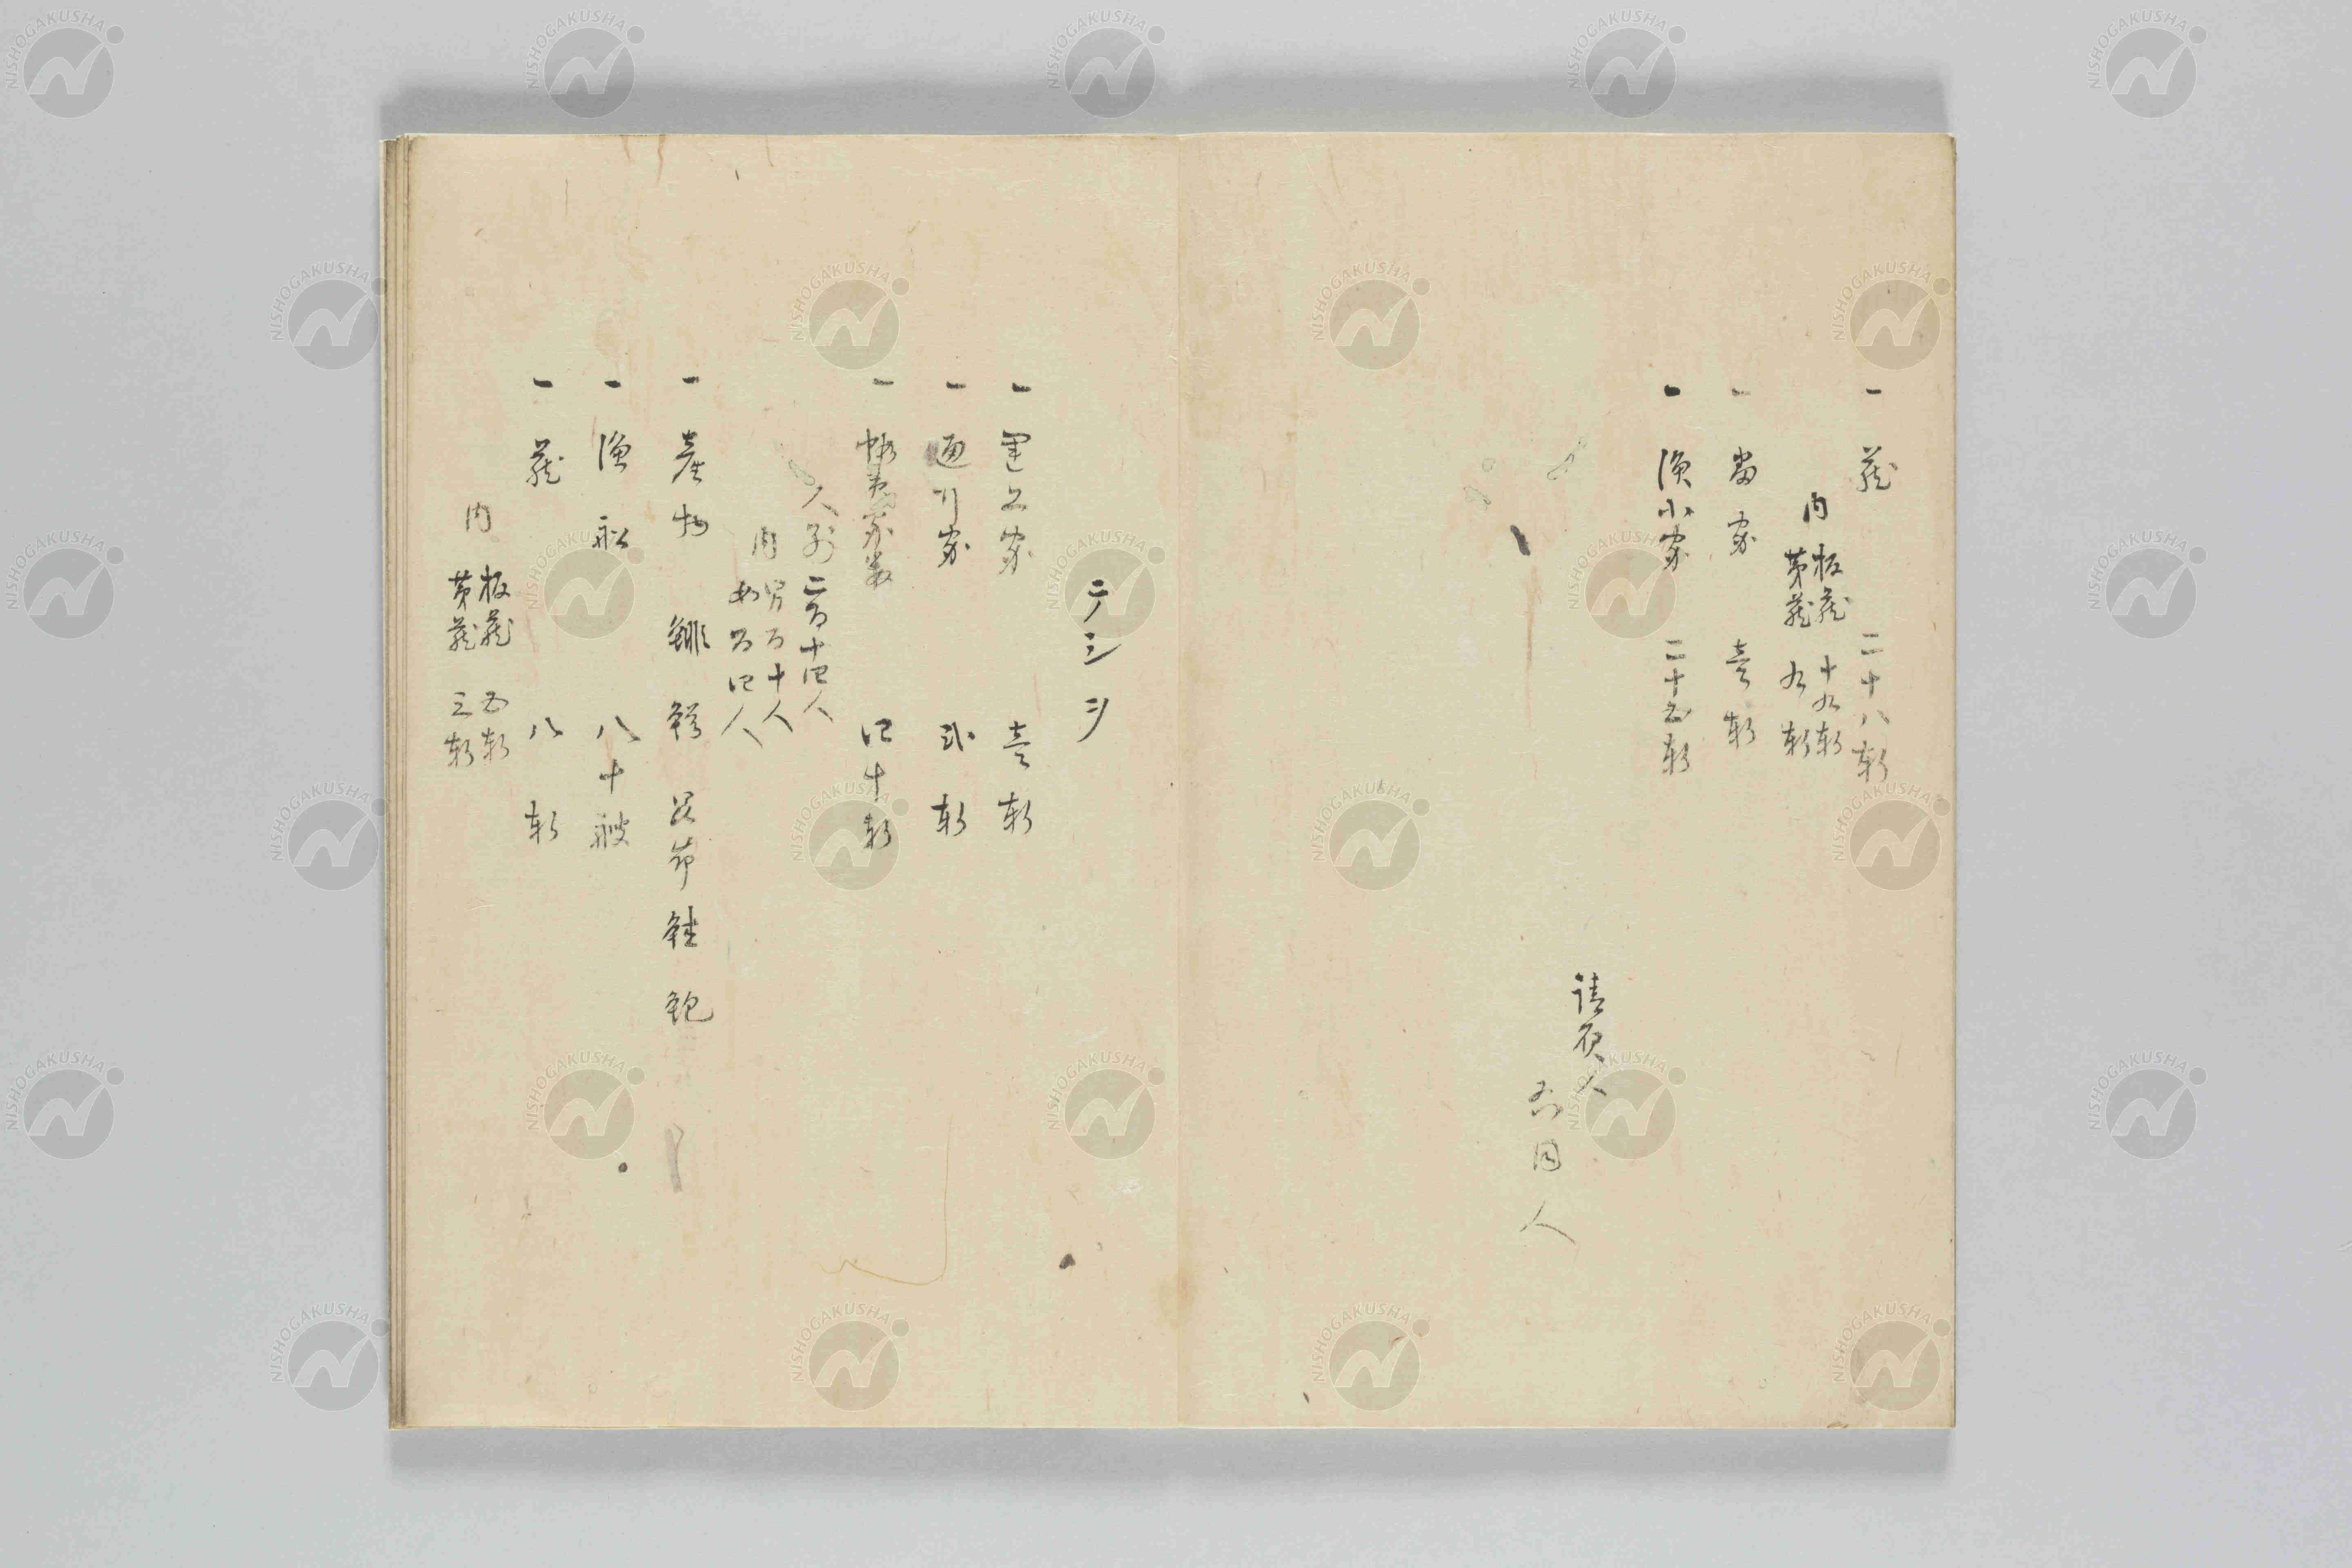 一 蔵 二十八軒
内 板蔵 十九軒
茅蔵 九軒
一 番家 壱軒
一 漁小家 二十五軒
請負人
右同人
テシヲ
一 運上家 壱軒
一 通行家 弐軒
一 蝦夷家数 四十軒
人別 二百十四人
内 男百十人
女百四人
一 産物 鯡 鮭 昆布 鱒 鮑
一 漁船 八十艘
一 蔵 八軒
内 板蔵 五軒
茅蔵 三軒
NISHOGAKUSHA